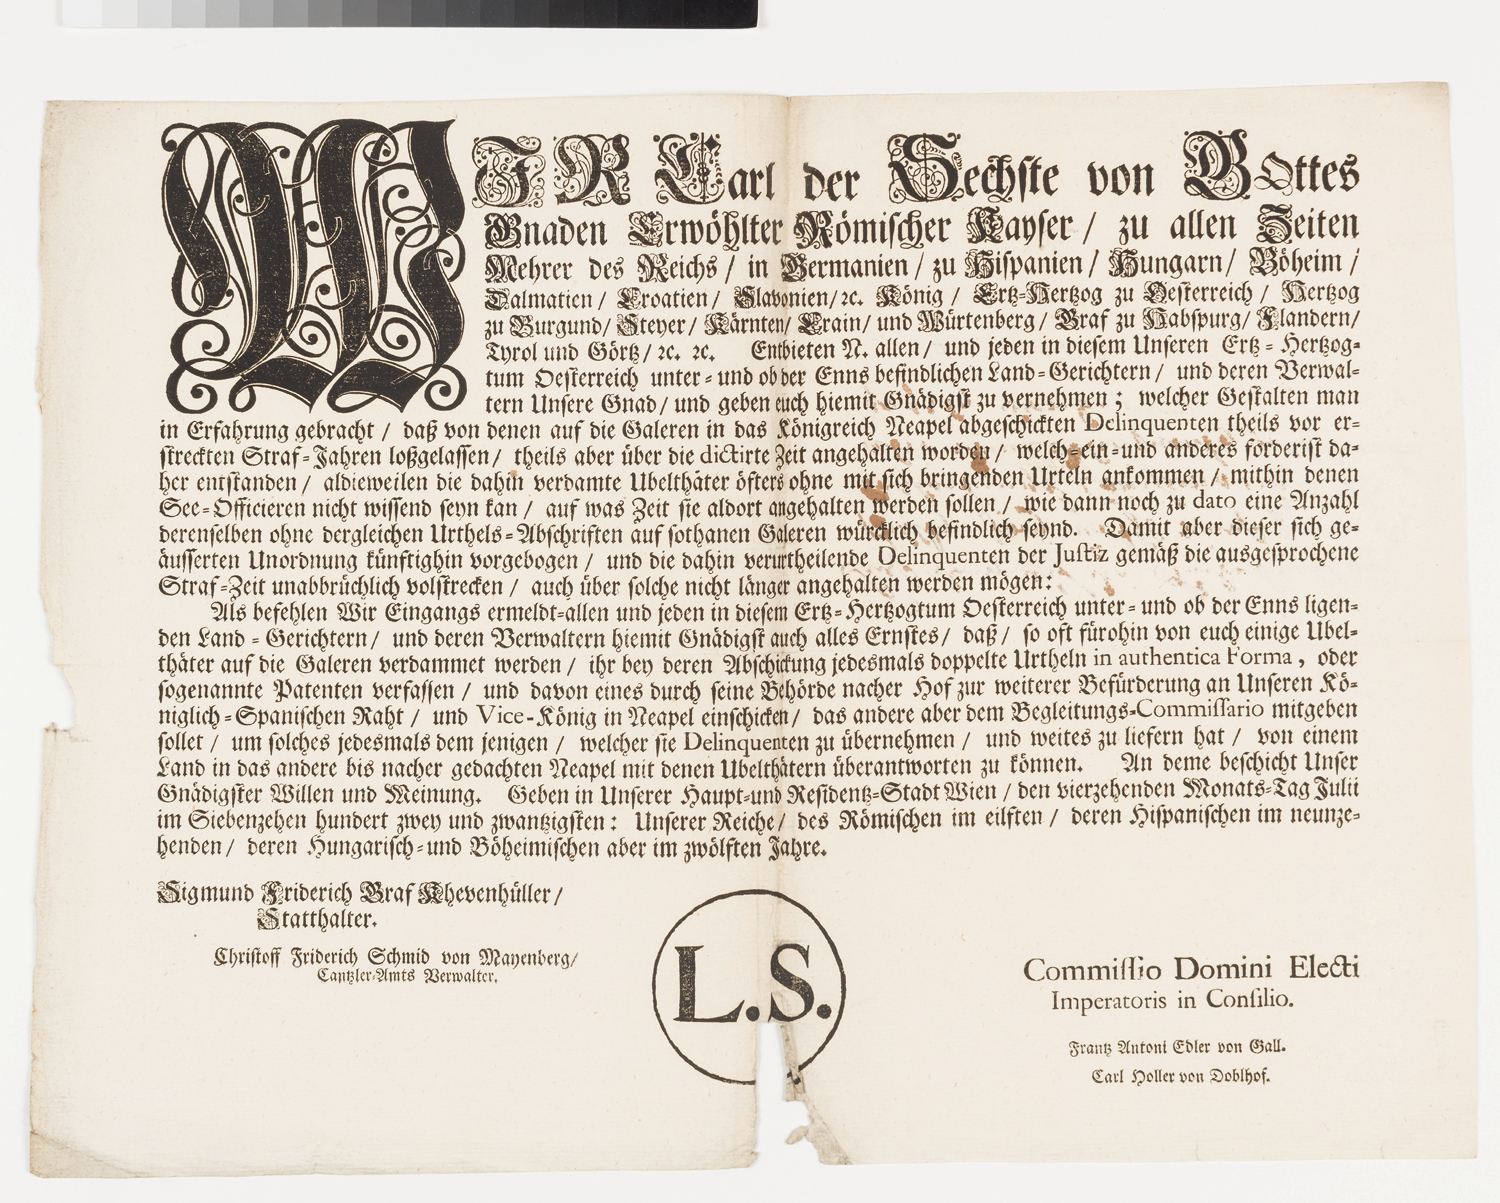 WIR Carl der Sechste von GOttes
Gnaden Erwöhlter Römischer Kayser / zu allen Zeiten
Mehrer des Reichs / in Germanien / zu Hispanien / Hungarn / Böheim /
Dalmatien / Croatien / Slavonien / ꝛc. König / Ertz-Hertzog zu Oesterreich / Hertzog
zu Burgund / Steyer / Kärnten / Crain / und Würtenberg / Graf zu Habspurg / Flandern /
Tyrol und Görtz / ꝛc. ꝛc. Entbieten N. allen / und jeden in diesem Unseren Ertz-Hertzog-
tum Oesterreich unter- und ob der Enns befindlichen Land-Gerichtern / und deren Verwal-
tern Unsere Gnad / und geben euch hiemit Gnädigst zu vernehmen ; welcher Gestalten man
in Erfahrung gebracht / daß von denen auf die Galeren in das Königreich Neapel abgeschickten Delinquenten theils vor er-
streckten Straf-Jahren loßgelassen / theils aber über die dictirte Zeit angehalten worden / welch-ein-und anderes forderist da-
her entstanden / aldieweilen die dahin verdamte Ubelthäter öfters ohne mit sich bringenden Urteln ankommen / mithin denen
See-Officieren nicht wissend seyn kan / auf was Zeit sie aldort angehalten werden sollen / wie dann noch zu dato eine Anzahl
derenselben ohne dergleichen Urthels-Abschriften auf sothanen Galeren würcklich befindlich seynd. Damit aber dieser sich ge-
äusserten Unordnung künftighin vorgebogen / und die dahin verurtheilende Delinquenten der Justiz gemäß die ausgesprochene
Straf-Zeit unabbrüchlich volstrecken / auch über solche nicht länger angehalten werden mögen:
Als befehlen Wir Eingangs ermeldt-allen und jeden in diesem Ertz-Hertzogtum Oesterreich unter- und ob der Enns ligen-
den Land-Gerichtern / und deren Verwaltern hiemit Gnädigst auch alles Ernstes / daß / so oft fürohin von euch einige Ubel-
thäter auf die Galeren verdammet werden / ihr bey deren Abschickung jedesmals doppelte Urtheln in authentica Forma, oder
sogenannte Patenten verfassen / und davon eines durch seine Behörde nacher Hof zur weiterer Befürderung an Unseren Kö-
niglich-Spanischen Raht / und Vice-König in Neapel einschicken / das andere aber dem Begleitungs-Commissario mitgeben
sollet / um solches jedesmals dem jenigen / welcher sie Delinquenten zu übernehmen / und weites zu liefern hat / von einem
Land in das andere bis nacher gedachten Neapel mit denen Ubelthätern überantworten zu können. An deme beschicht Unser
Gnädigster Willen und Meinung. Geben in Unserer Haupt-und Residentz-Stadt Wien / den vierzehenden Monats-Tag Julii
im Siebenzehen hundert zwey und zwantzigsten: Unserer Reiche / des Römischen im eilften / deren Hispanischen im neunze-
henden / deren Hungarisch-und Böheimischen aber im zwölften Jahre.
Sigmund Friderich Graf Khevenhüller /
Statthalter.
Christoff Friderich Schmid von Mayenberg /
Cantzler-Amts Verwalter.
L.S.
Commissio Domini Electi
Imperatoris in Consilio.
Frantz Antoni Edler von Gall.
Carl Holler von Doblhof.